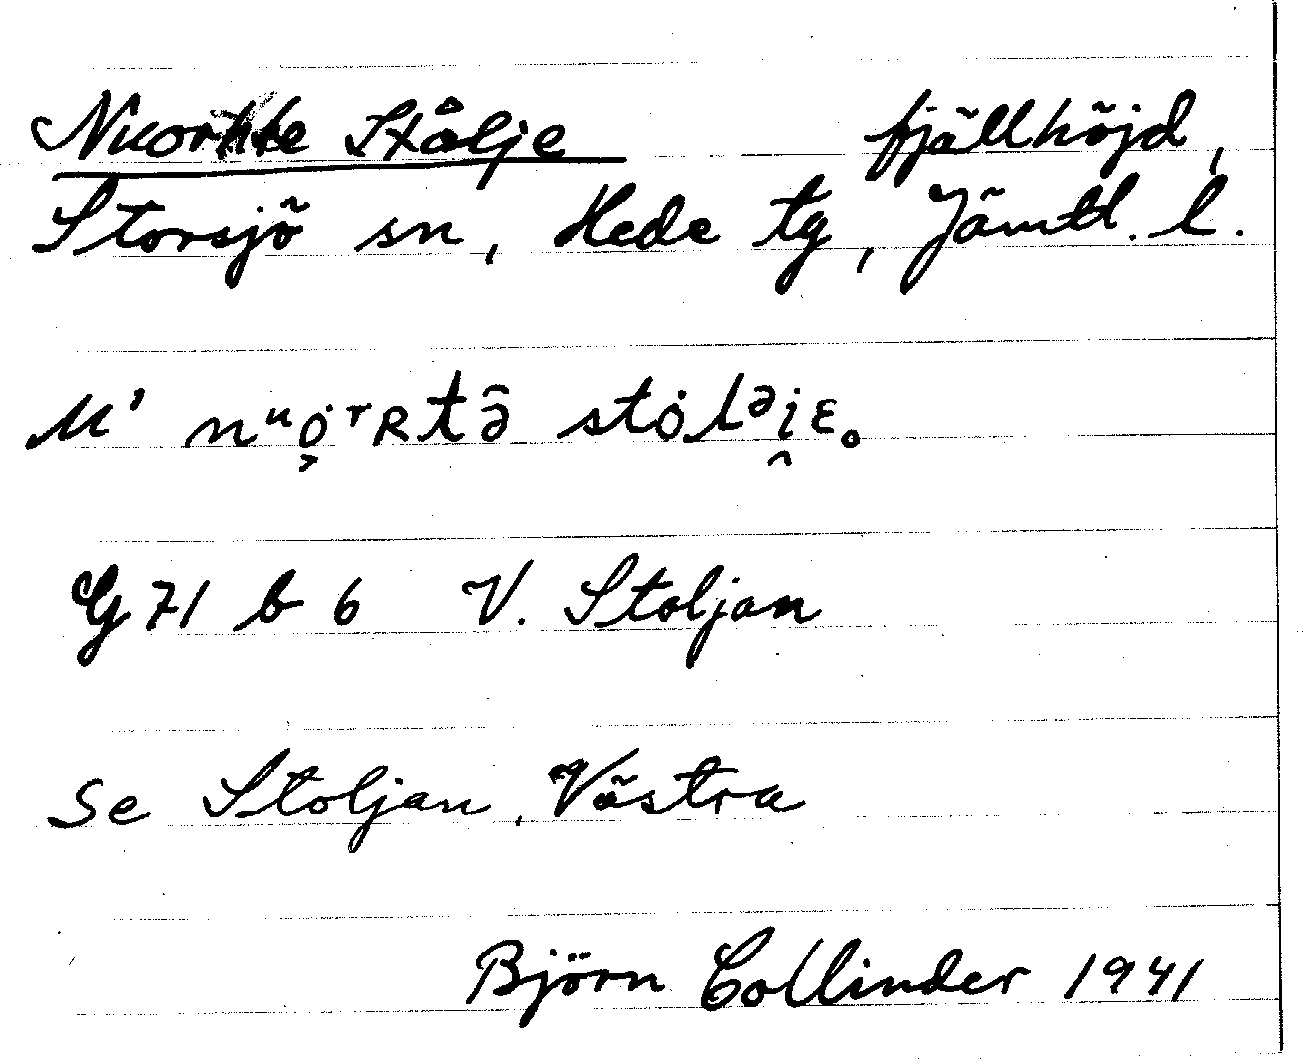 Nuortte Ståłje fjällhöjd,
Storsjö sn, Hede tg, Jämtl. l.
M' nᵘọ̇ʳRtə̂ stȯlᵊi̯ɛ.
G 71 b 6 V. Stoljan
Se Stoljan, Västra
Björn Collinder 1941